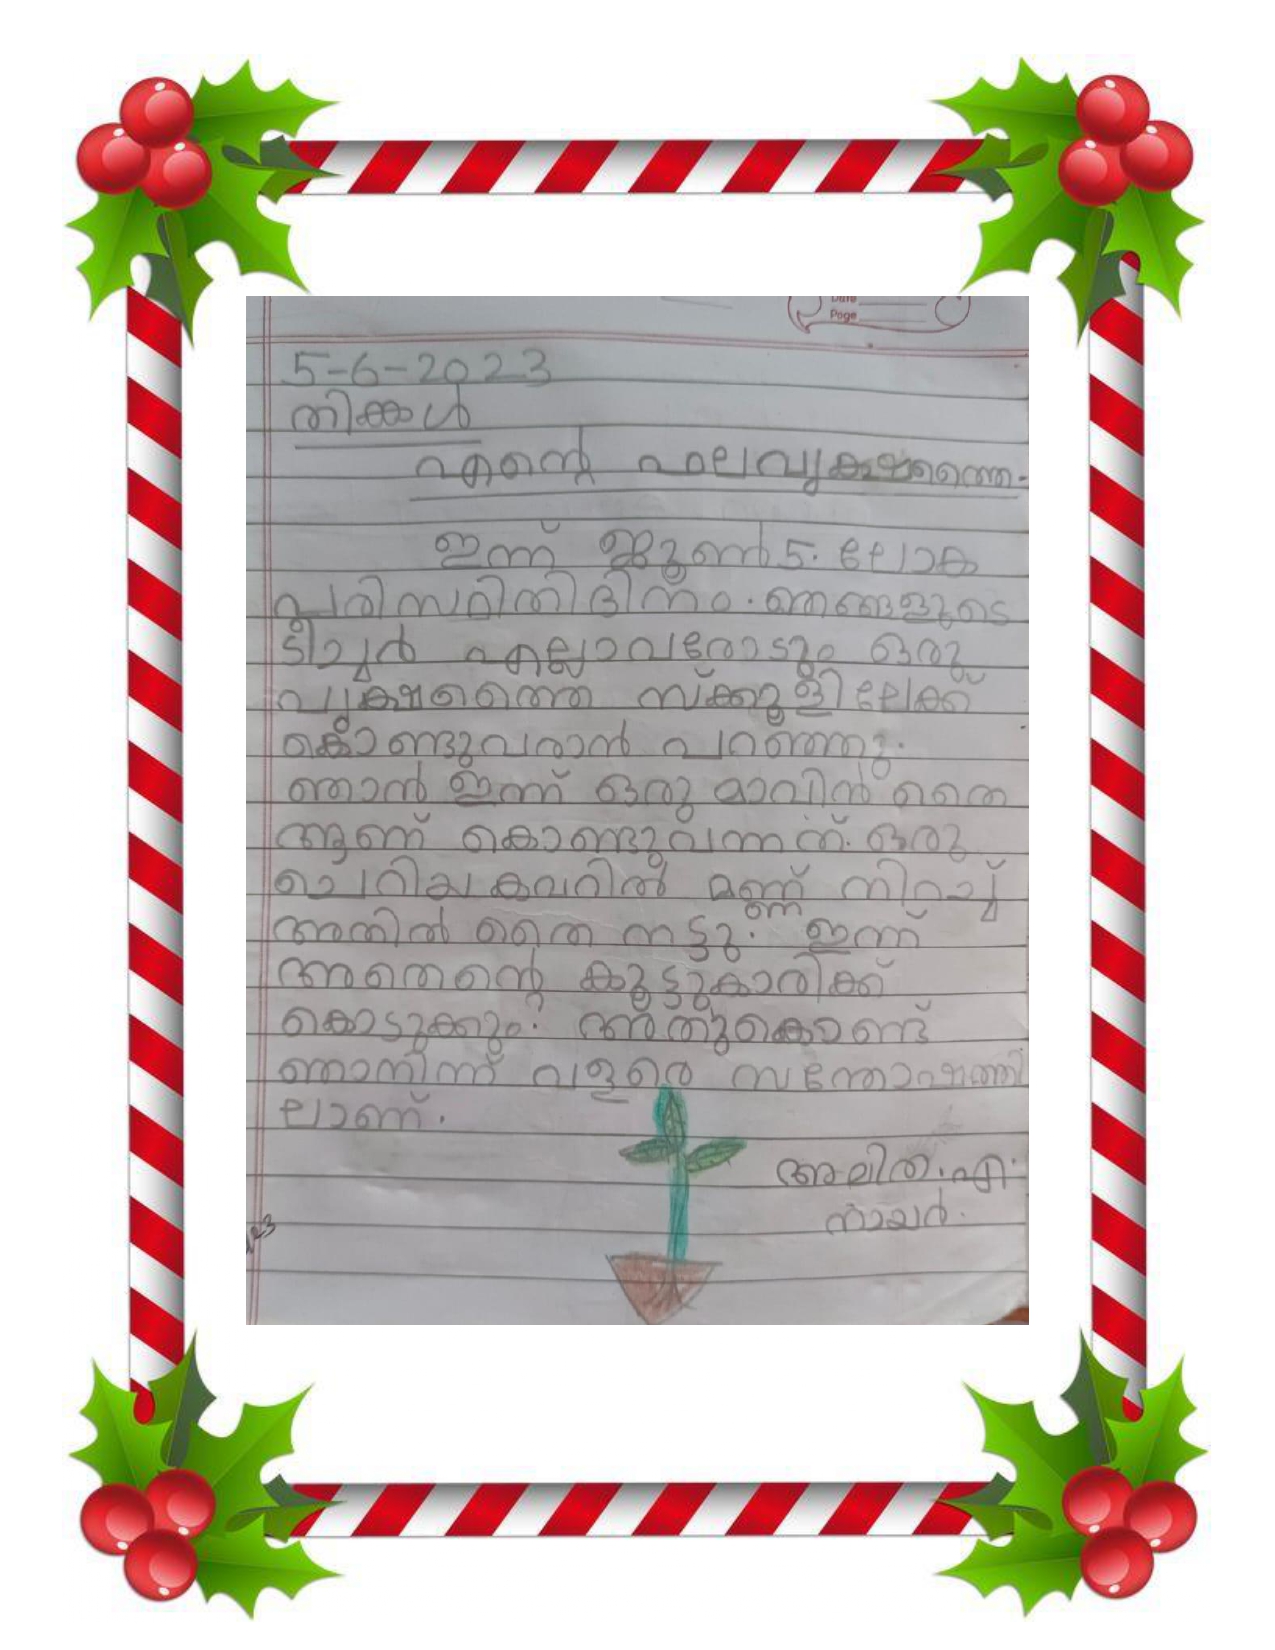 Date
Page
5-6-2023
തിങ്കൾ
എന്റെ ഫലവൃക്ഷത്തൈ.
ഇന്ന് ജൂൺ 5. ലോക
പരിസ്ഥിതിദിനം. ഞങ്ങളുടെ
ടീച്ചർ എല്ലാവരോടും ഒരു
വൃക്ഷത്തൈ സ്ക്കൂളിലേക്ക്
കൊണ്ടുവരാൻ പറഞ്ഞു.
ഞാൻ ഇന്ന് ഒരു മാവിൻ തൈ
ആണ് കൊണ്ടുവന്നത്. ഒരു
ചെറിയ കവറിൽ മണ്ണ് നിറച്ച്
അതിൽ തൈ നട്ടു. ഇന്ന്
അതെന്റെ കൂട്ടുകാരിക്ക്
കൊടുക്കും. അതുകൊണ്ട്
ഞാനിന്ന് വളരെ സന്തോഷത്തി
ലാണ്.
എ.
നായർ.